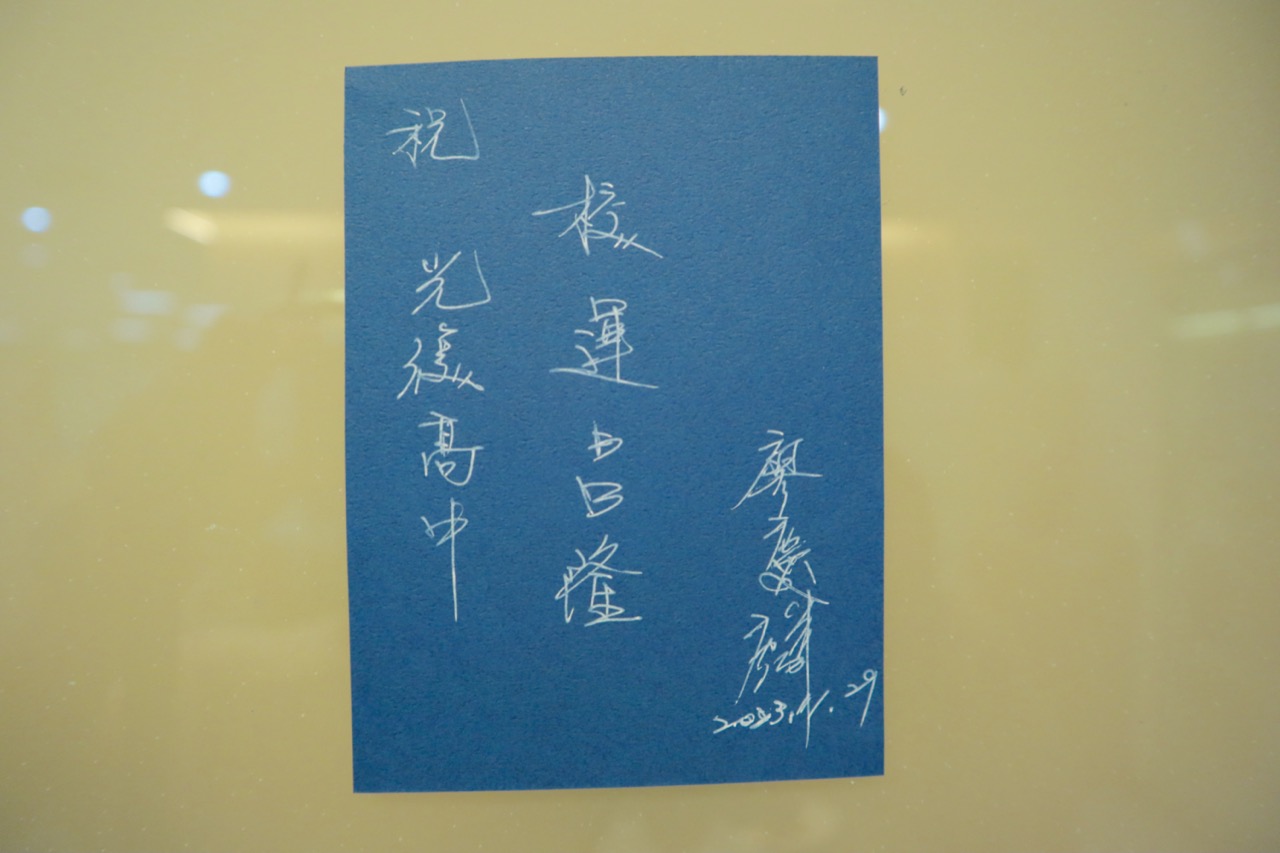 祝
光復高中
校運昌隆
廖慶麟
2023.11.29